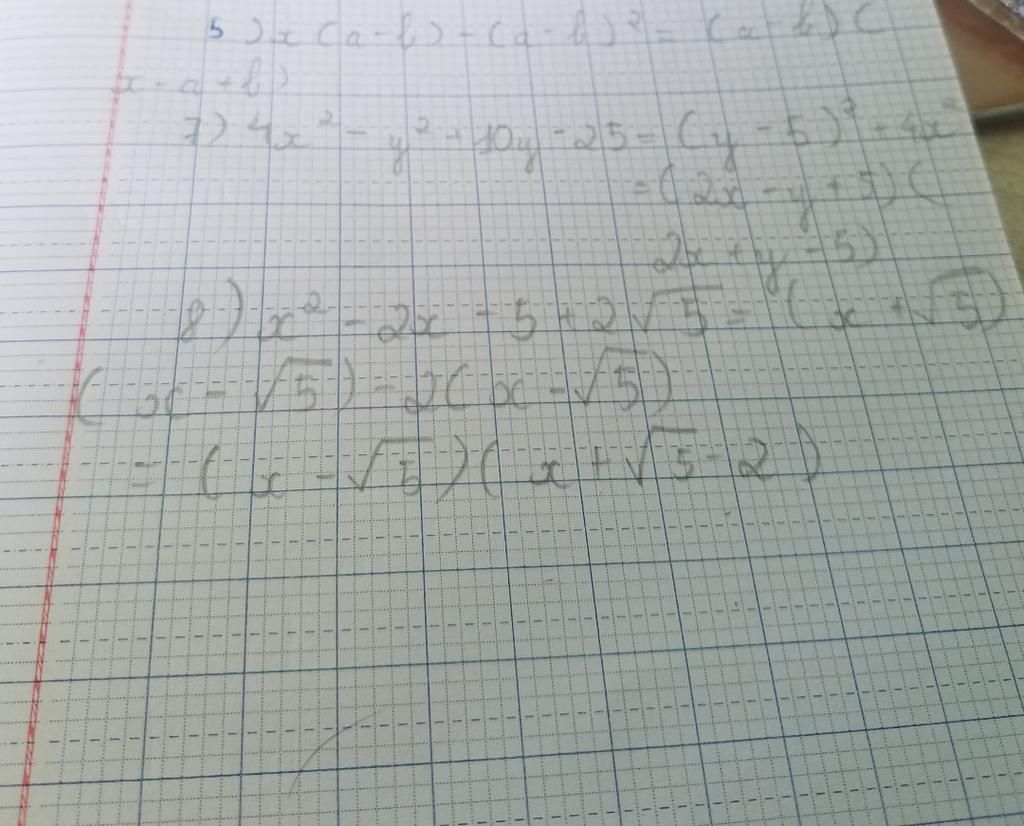 5) x(a-b)-(a-b)²=(a-b)(
x-a+b)
7) 4x²-y²+10y-25=(y-5)²+4x²
=(2x-y+5)(
2x+y-5)
8) x²-2x-5+2√5=(x+√5)
(x-√5)-2(x-√5)
=(x-√5)(x+√5-2)